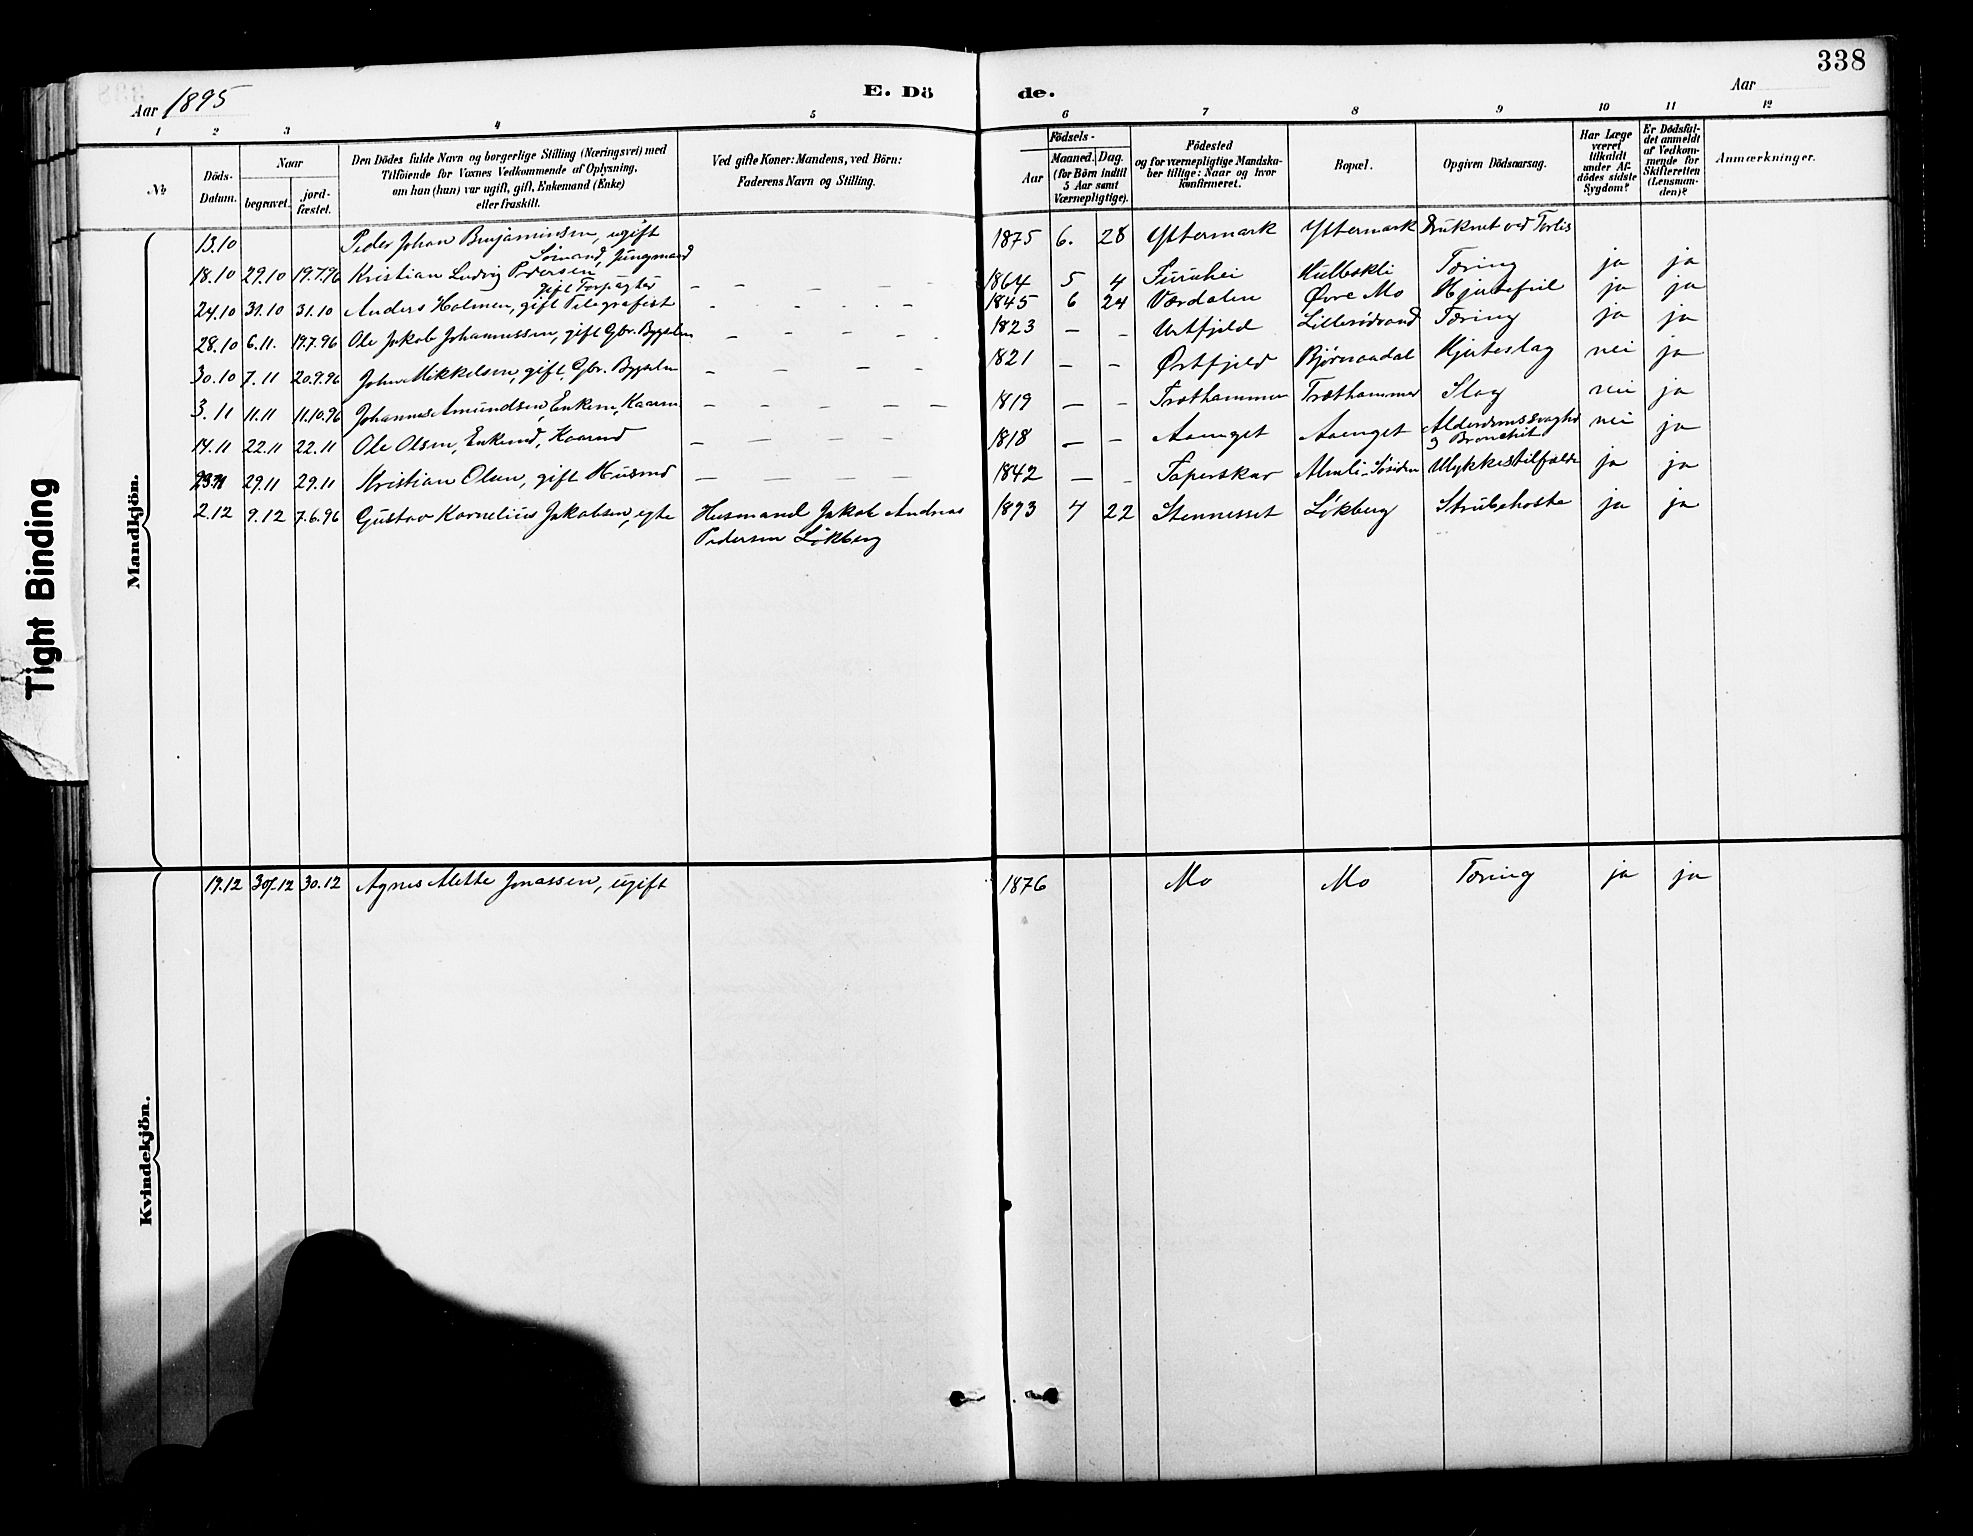 338
Aar 1895
E. Dö
de.
Aar
1 2 3 4 5 6 7 8 9 10 11 12
№
Döds-Datum.
Naar
begravet.
jord-fæstet.
Den Dödes fulde Navn og borgerlige Stilling (Næringsvei) med
Tilföiende for Voxnes Vedkommende af Oplysning,
om han (hun) var ugift, gift, Enkemand (Enke)
eller fraskilt.
Ved gifte Koner: Mandens, ved Börn:
Faderens Navn og Stilling.
Födsels-
Aar
Maaned. Dag.
(for Börn indtil
5 Aar samt
Værnepligtige).
Födested
og for værnepligtige Mandska-
ber tillige: Naar og hvor
konfirmeret.
Bopæl.
Opgiven Dödsaarsag.
Har Læge
været
tilkaldt
under Af-
dödes sidste
Sygdom?
Er Dödsful-
det anmeldt
af Vedkom-
mende for
Skifteretten
(Lensman-
den)?
Anmærkninger.
Mandkjön.
13.10 Peder Johan Benjaminsen, ugift 1875 6. 28 Yttermark Yttermark Druknet ved
Sömand, Jungmand
18.10 29.10 19.7.96 Kristian Ludvig Pedersen, – – – – – 1864 5 4 Furuhei Tæring ja ja
gift Forpagter
24.10 31.10 31.10 Anders Holmen, gift Telegrafist - - - - - 1845 6 24 Værdalen Øvre Mo Hjertefeil ja ja
28.10 6.11. 19.7.96 Ole Jakob Johannessen, gift Gbr. Bygselm – – – - 1823 – - Urtfjeld Lillerödvand Tæring ja ja
30.10 7.11 20.9.96 John Mikkelsen, gift, Gbr. Bygselm – – – – 1821 – – Ørtfjeld Bjørnaadal Hjerteslag nei ja
3.11 11.11 11.10.96 Johannes Amundsen, Enkem, Kaarm – – – – – 1819 – – Træthammer Træthammer Slag nei ja
14.11 22.11 22.11 Ole Olsen, Enkemd, Kaarmd – – – – 1818 – – Aaenget Aaenget Alderdomssvaghed nei ja
og Bronchit
23.11 29.11 29.11 Kristian Olsen, gift Husmd – – – – – 1842 – – Taperskar Almli Ulykkestilfælde ja ja
2.12 9.12 7.6.96 Gustav Kornelius Jakobsen, egte Husmand Jakob Andreas 1893 7 22 Stennesset Løkberg Strubehoste ja ja
Pedersen Løkberg
Kvindekjön.
17.12 30.12 30.12 Agnes Alette Jonassen, ugift 1876 Mo Mo Tæring ja ja
Tight Binding